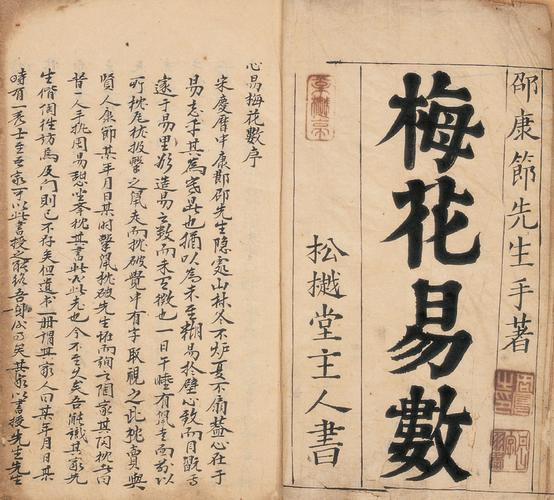 邵康節先生手著
梅花易數
松樾堂主人書
心易梅花數序
宋慶曆中康節邵先生隱處山林冬不炉夏不扇葢心在于
易忘乎其為寒暑也猶以為未至糊易於壁心致而目玩
邃于易理欲造易之數而未有徵也一日午睡有鼠走而前以
所枕瓦枕投擊之鼠走而枕破覺中有字取視之此枕賣與
賢人康節某年月日某时擊鼠枕破先生恠而詢之陶家其陶枕者曰
昔一人手执周易憩坐举枕其書此必此老也今不至久矣吾能識其家先
生偕陶徃訪焉及門則已不存矣但遺书一册謂其家人曰某年月日某
時有一秀士至吾家可以此書授之能終吾身矣其家以書授先生先生